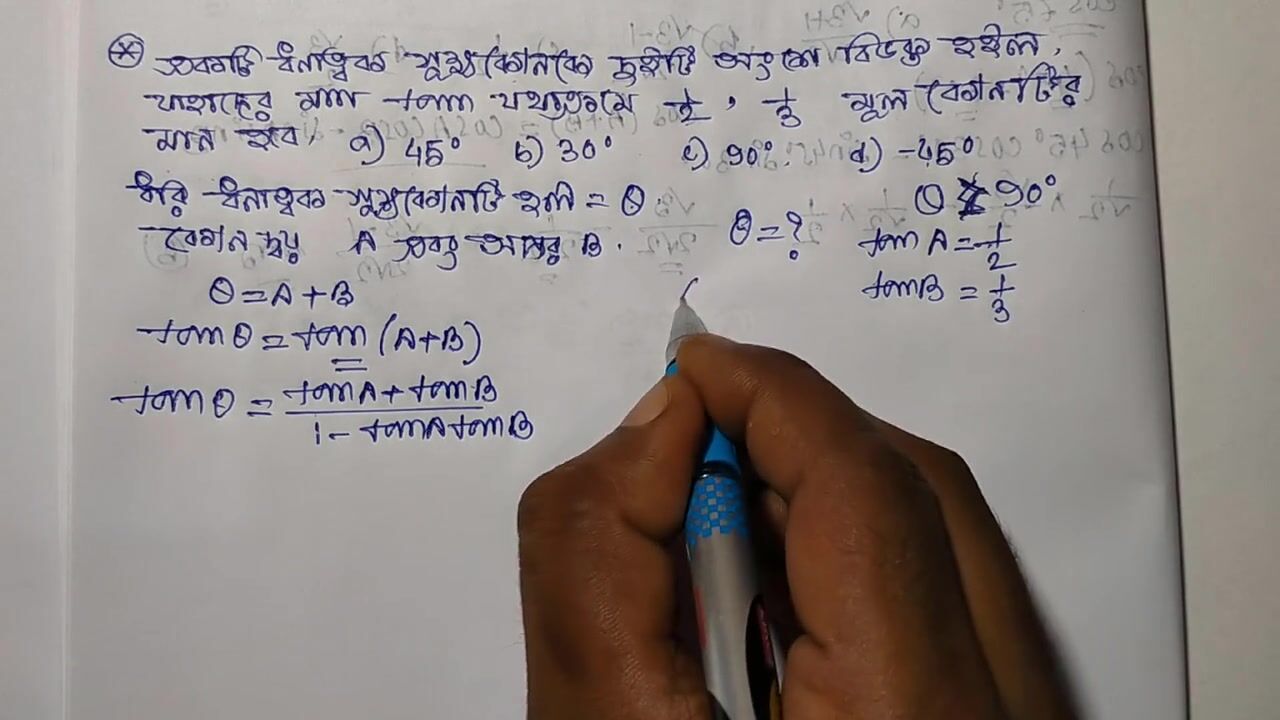 একটি ধনাত্মক সূক্ষ্মকোণকে দুইটি অংশে বিভক্ত হইল,
যাহাদের মান tan যথাক্রমে 1/2, 1/3 মূল কোণটির
মান হবে, a) 45° b) 30° c) 90°. d) -45°
ধরি ধনাত্মক সূক্ষ্মকোণটি হল = θ.
θ 90°
কোণ দ্বয় A এবং অপর B. θ = ? tan A = 1/2
θ = A + B tan B = 1/3
tan θ = tan (A+B)
tan θ = tan A + tan B / 1 - tan A tan B